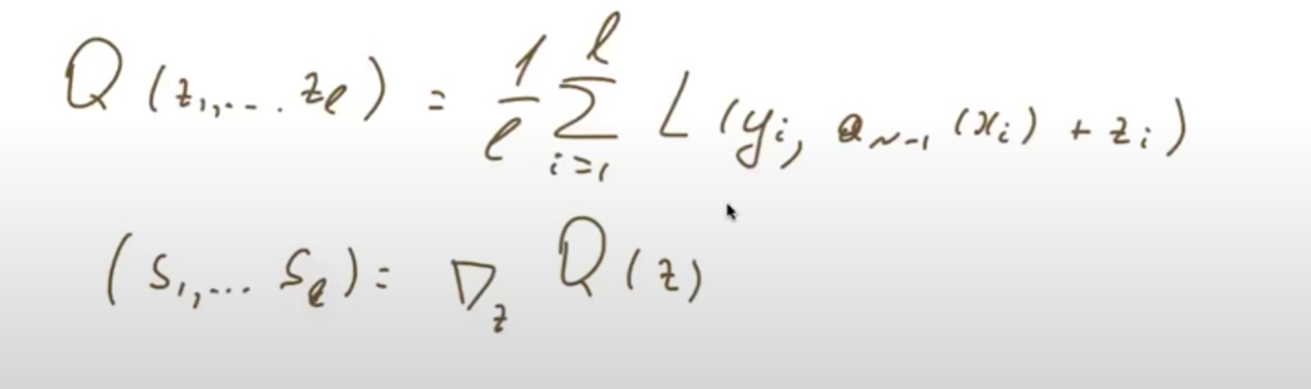 Q (z₁,... z_ℓ) = 1/ℓ ∑_{i=1}^{ℓ} L (y_i, a_{N-1} (x_i) + z_i)
(s₁,... s_ℓ) = ∇_z Q (z)